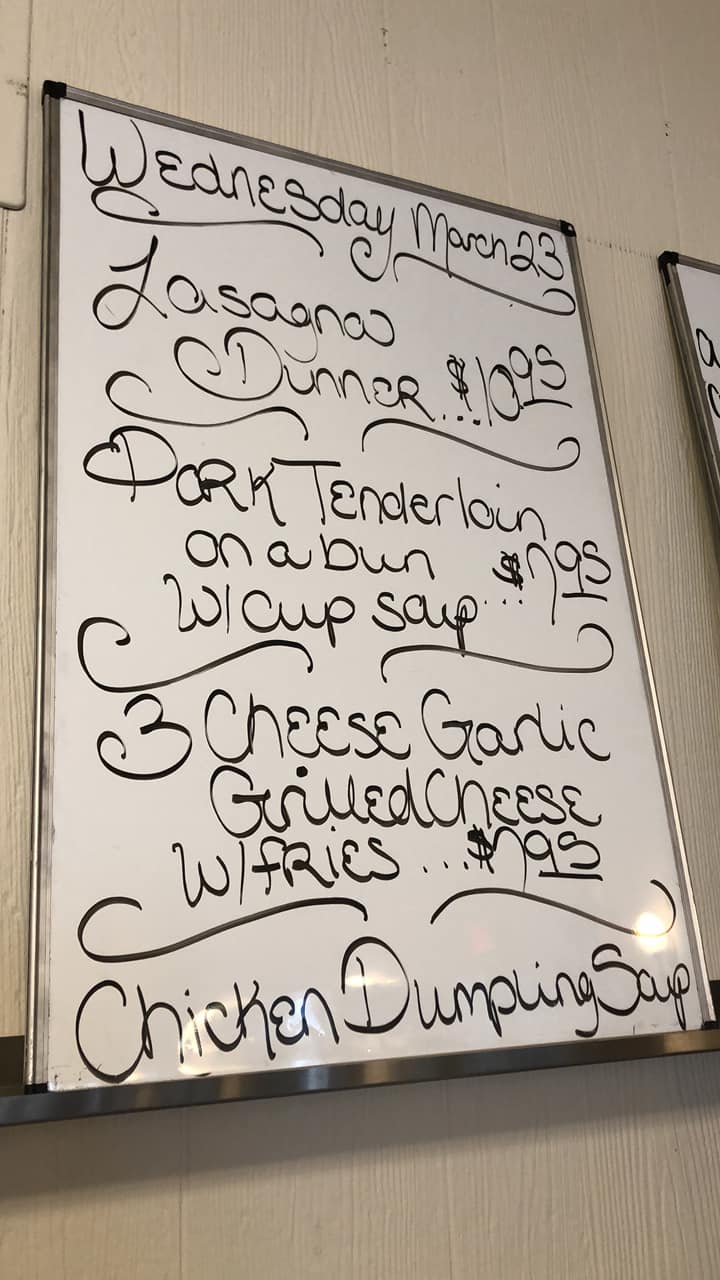 Wednesday March 23
Lasagna
Dinner...$10.95
Pork Tenderloin
on a bun $7.95
W/ Cup soup...
3 Cheese Garlic
Grilled Cheese
W/fries ...$7.95
Chicken Dumpling Soup